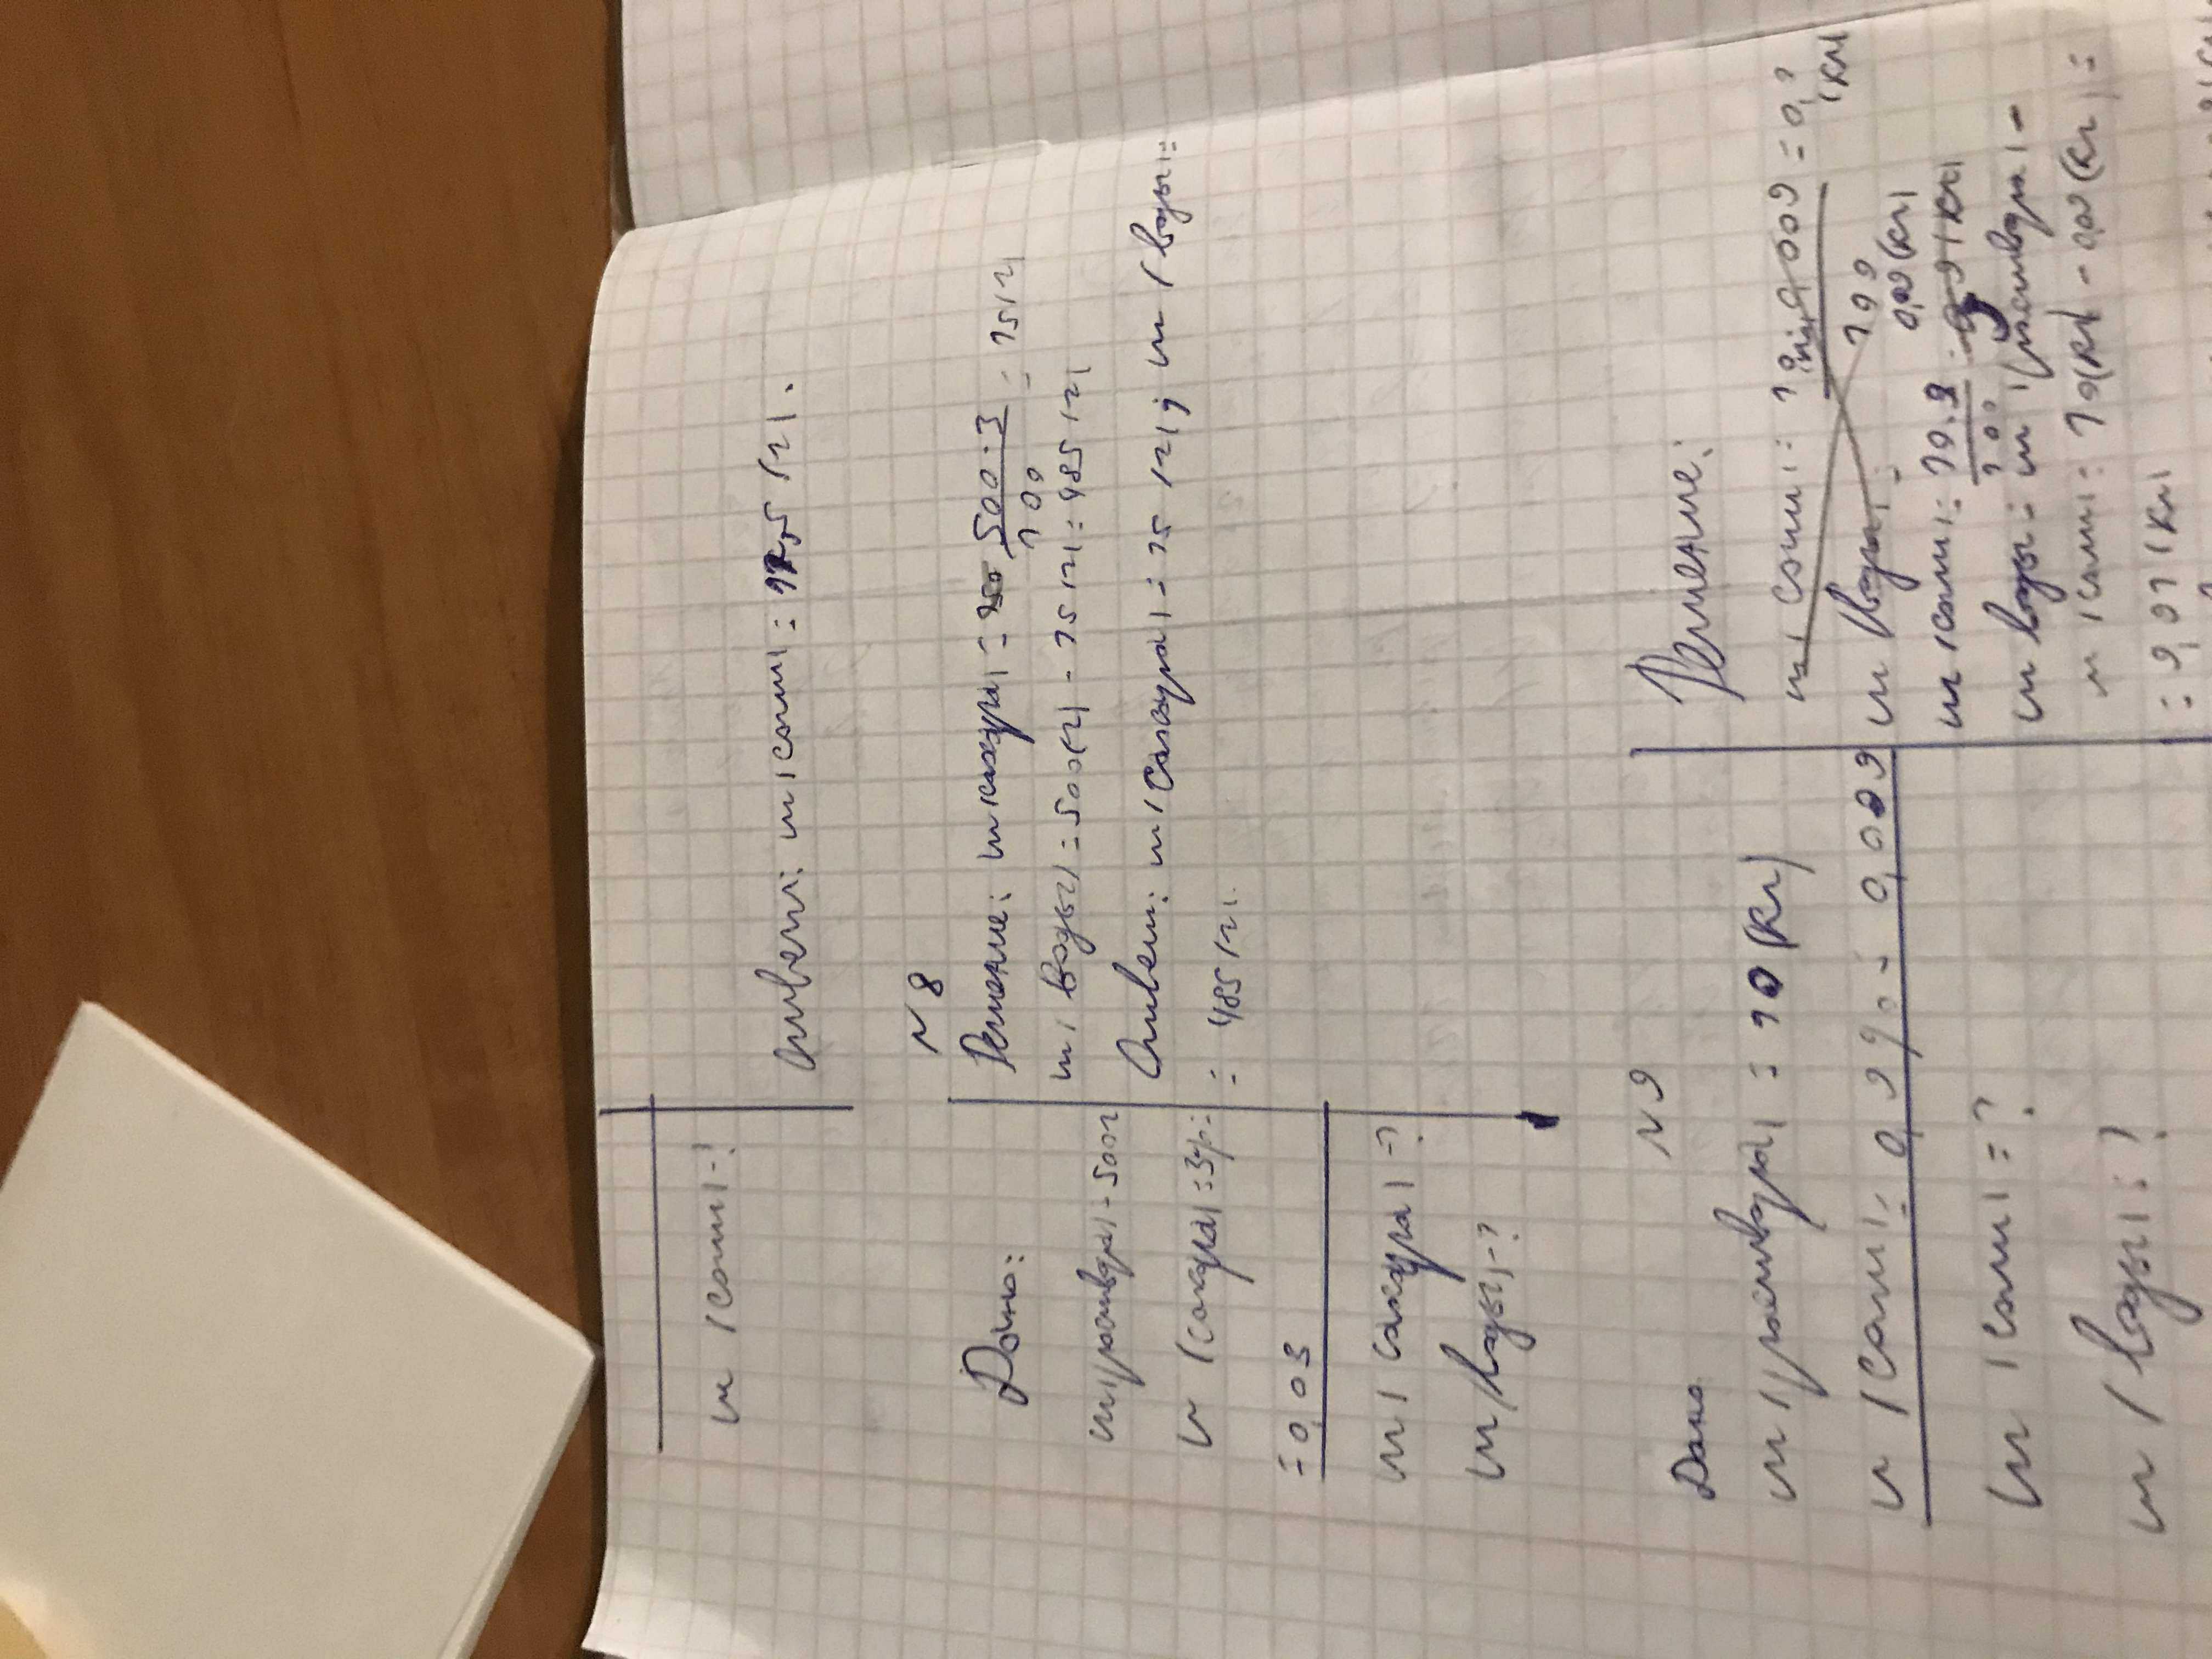 m (соли) - ?
Ответ: m (соли) = 12,5 (г).
N 8
Дано:
m (раствора) - 500г
m (сахара) = 3% =
= 0,03
m (сахара) - ?
m (воды) - ?
Решение: m (сахара) = 500 · 3 / 100 = 15 (г)
m (воды) = 500 (г) - 15 (г) = 485 (г)
Ответ: m (Сахара) = 15 (г); m (воды) =
= 485 (г).
N 9
Дано
m (раствора) = 10 (кг)
m (соли) = 0,9% = 0,009
m (соли) = ?
m (воды) = ?
Решение:
m (соли) = 0,009 = 0,?
100 (кг)
m (воды) =
m (соли) = 10 · 9 / 100 0,09 (кг)
m воды = m (раствора) -
m (соли) = 10 (кг) - 0,09 (кг) =
= 9,91 (кг)